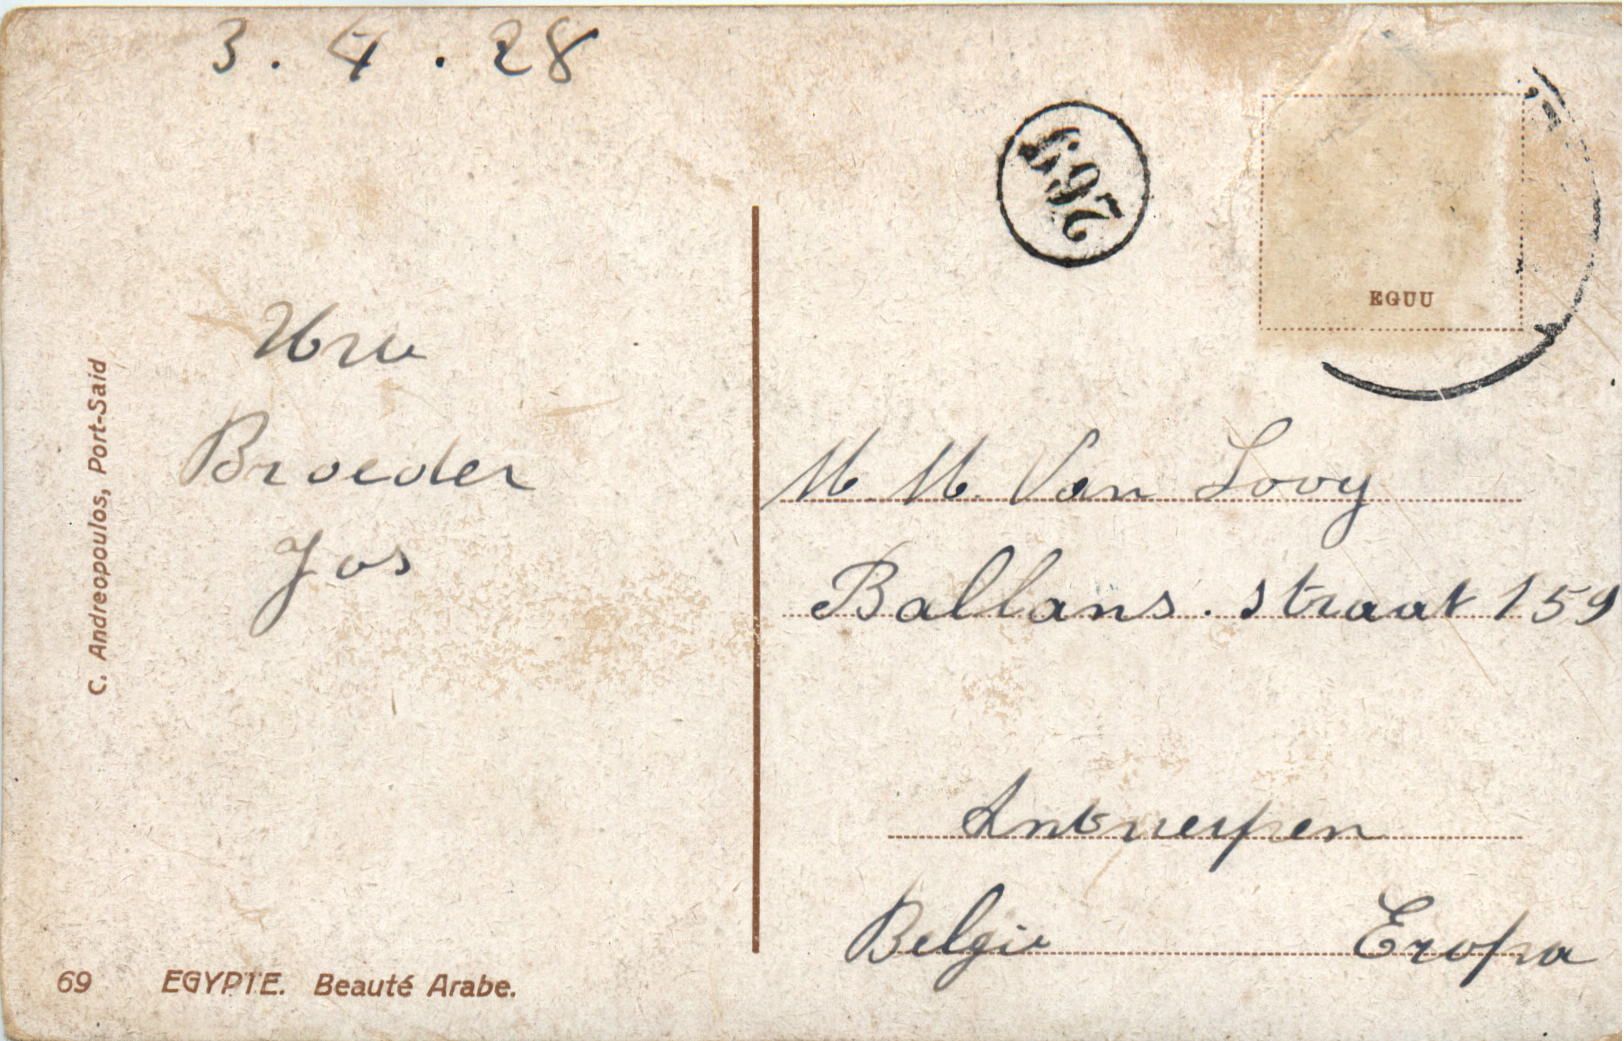 3. 4. 28
267
EGUU
Uw
Broeder
Jos
M. M. Van Looy
Ballans. straat 159
Antwerpen
Belgie Eropa
C. Andreopoulos, Port-Said
69 EGYPTE. Beauté Arabe.